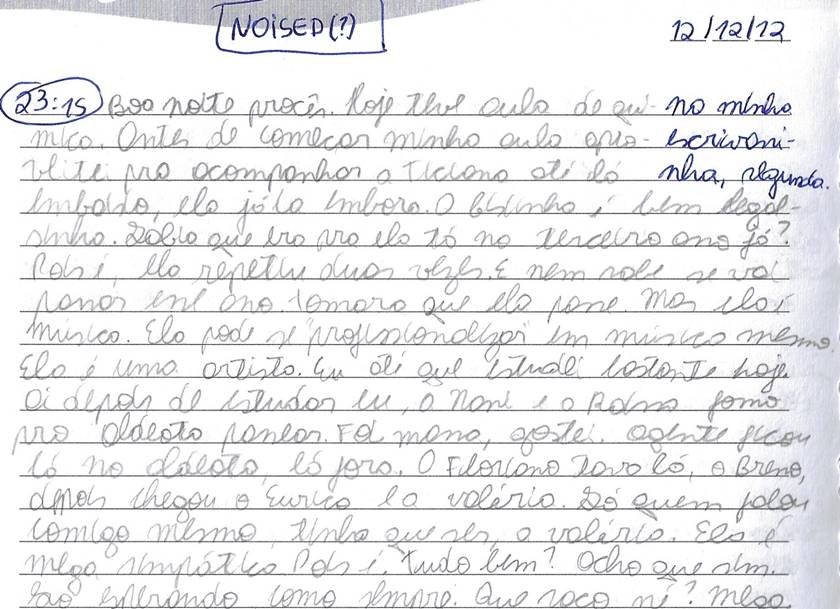 NOISED(?)
12/12/12
23:15 Boa noite procês. Hoje tive aula de quí-
mica. Antes de começar minha aula apro-
veitei pra acompanhar a Ticiana até lá
embaixo, ela já ia embora. O bixinha é bem legal-
sinha. Sabia que era pra ela tá no terceiro ano já?
Pois é, ela repetiu duas vezes. E nem sabe se vai
passar esse ano. Tomara que ela passe. Mas ela é
música. Ela pode se "profissionalizar" em música mesmo.
Ela é uma artista. Eu até que estudei bastante hoje.
Aí depois de estudar eu, a Nani e o Robson fomo
pro passear. Foi massa, gostei. Agente ficou
lá no lá fora. O Floriano tava lá, o Breno,
depois chegou o Eurico e a Valéria. Só quem falou
comigo mesmo, tinha que ser, a Valéria. Ela é
mega simpática. Pois é. Tudo bem? Acho que sim.
Tão esperando como sempre. Que saco né? Mega.
na minha
escrivani-
nha, segunda.